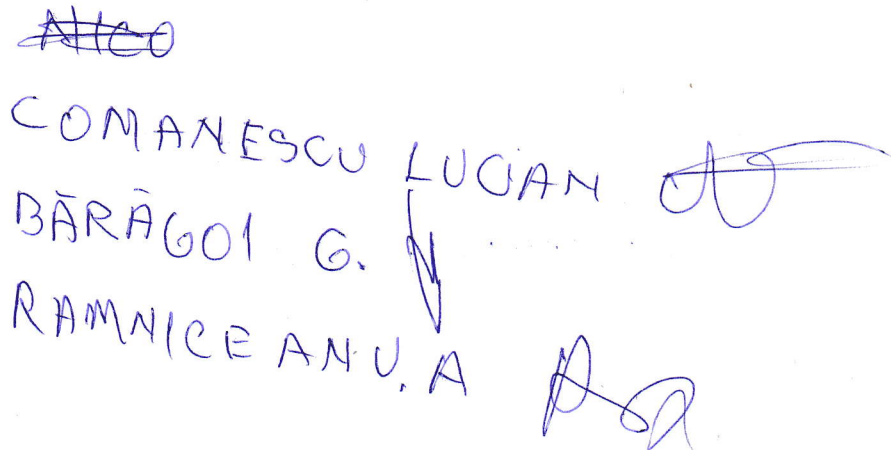 COMANESCU LUCIAN
BĂRĂGOI G.
RAMNICEANU.A